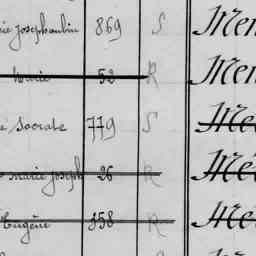 ie Josephaubin 869 S Men
Marie 52 R Men
e Socrate 779 S Mé
marie joseph 26 R Mé
Eugène 358 R Mé